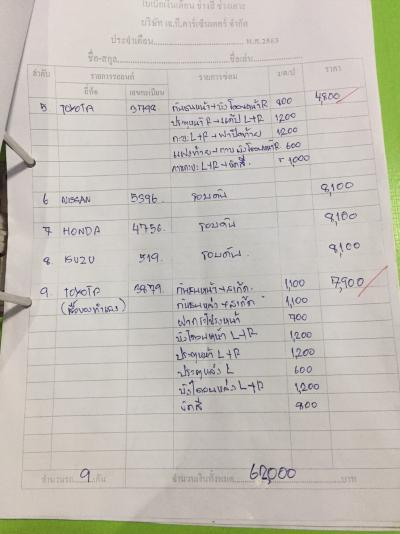 ใบเบิกเงินเดือน ช่างสี ช่างเคาะ
บริษัท เจ.ที.คาร์เซ็นเตอร์ จำกัด
ประจำเดือน พ.ศ.2563
ชื่อ-สกุล ชื่อเล่น
ลำดับ รายการรถยนต์ รายการซ่อม ราคา
ยี่ห้อ เลขทะเบียน
5 TOYOTA 3798 กันชนหน้า+บังโคลนหน้า R 800 4,800
ประตูหน้า R+แก้ป L+R 1200
L+R+ฝาปิดท้าย 1200
600
L+R+ขัดสี 1,000
6 NISSAN 5396. รอบคัน 8,100
7 HONDA 4756. รอบคัน 8,100
8. ISUZU 519. รอบคัน. 8,100
9. TOYOTA 6879. กันชนหน้า+สเกิ๊ต. 1,100 7,900
กันชนหลัง+สเกิ๊ต. 1,100
ฝากระโปรงหน้า 700
บังโคลนหน้า L+R 1,200
ประตูหน้า L+R 1,200
ประตูหลัง L 600
บังโคลนหลัง L+R 1,200
ขัดสี 800
จำนวนรถ 9 คัน จำนวนเงินทั้งหมด 62,000 บาท